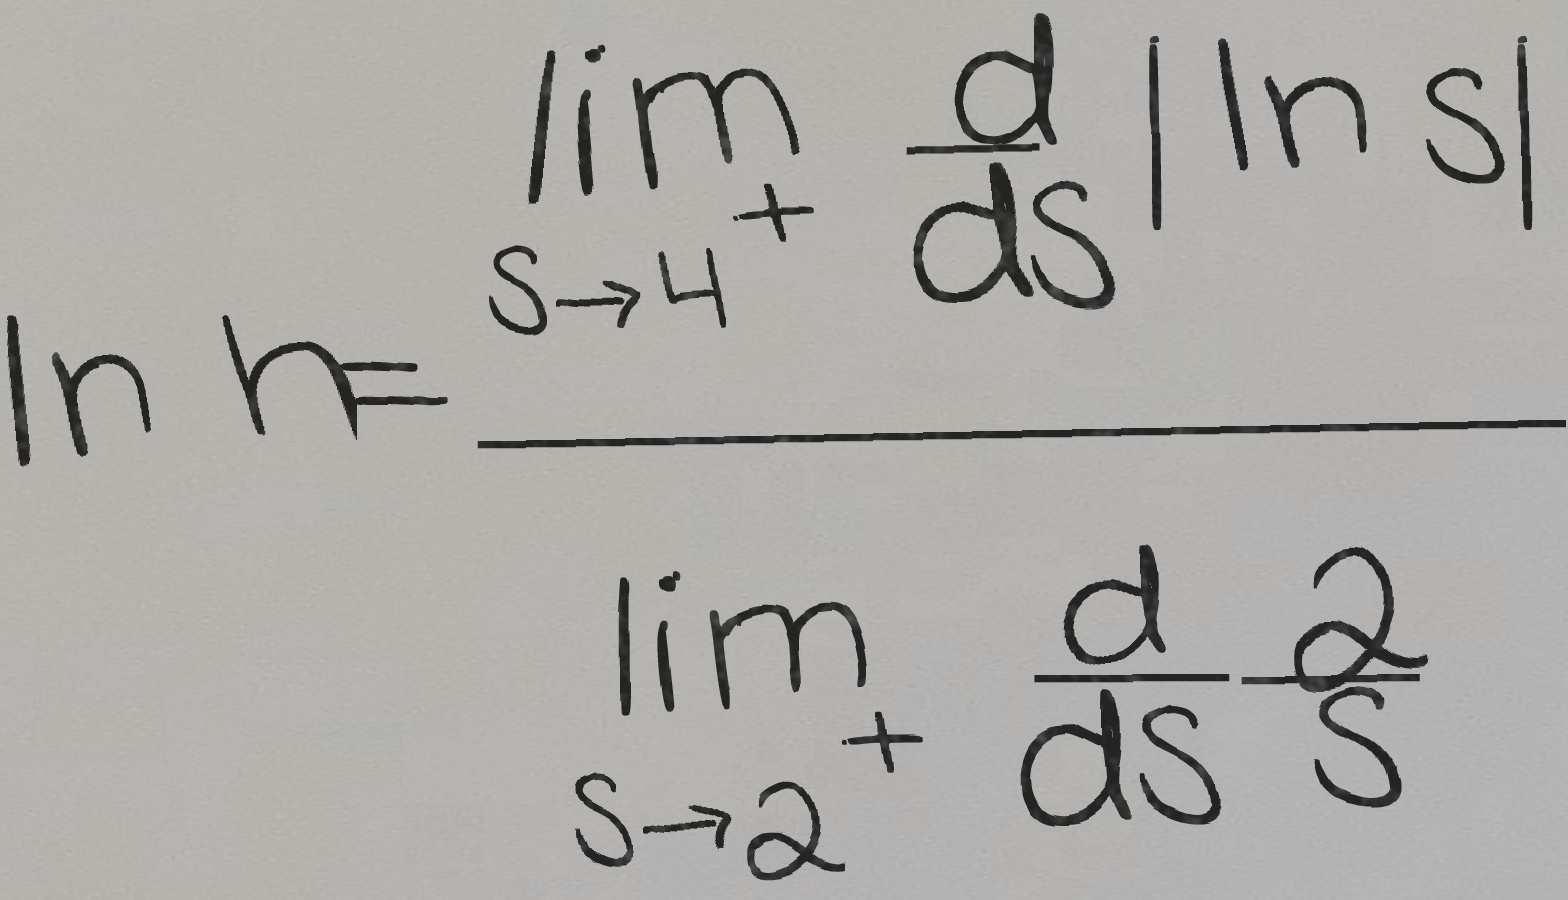 ln h = \frac{\lim_{s \to 4^+} \frac{d}{ds} |\ln s|}{\lim_{s \to 2^+} \frac{d}{ds} \frac{2}{s}}